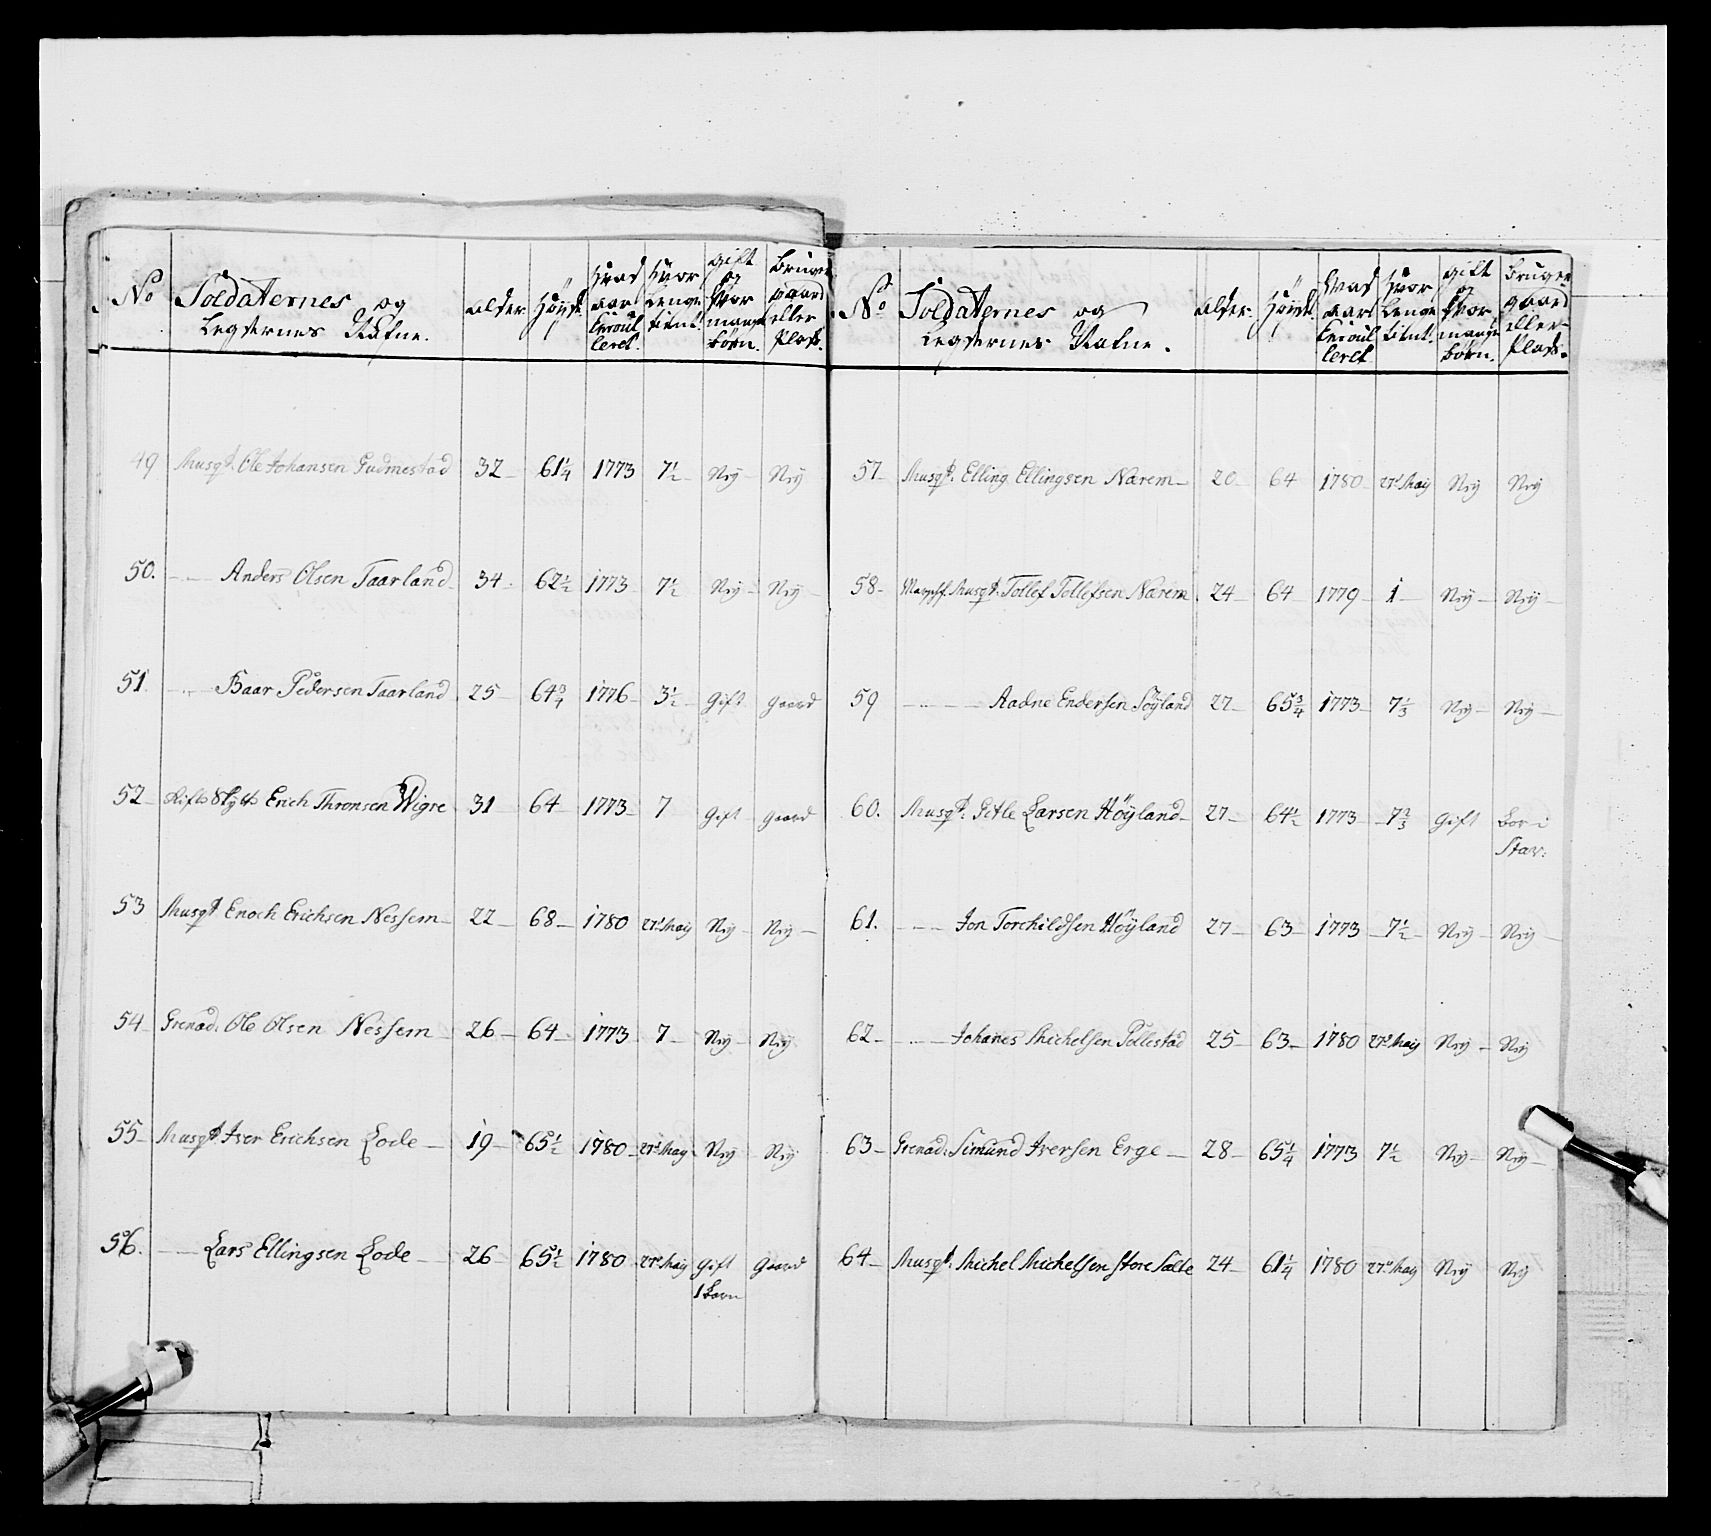 No Soldaternes og Legdernes Nafne. alder Höyde Hvad aar Enroulleret Hvor Lenge tient. gift og Hvor mange börn. bruger gaard eller Plads.
49 Musqt. Ole Johansen Gudmestad 32 61 1/4 1773 7 1/2 Nej Nej
50. — Anders Olsen Taarland 34 62 1/2 1773 7 1/2 Nej Nej
51. — Baar Pedersen Taarland 25 64 3/4 1776 3 1/2 Gift gaard
52 Erich Thronsen Wigre 31 64 1773 7 Gift gaard
53 Musqt Enoch Erichsen Nessem 22 68 1780 27de Maij Nej Nej
54 Grenad: Ole Olsen Nessem 26 64 1773 7 Nej Nej
55 Musqt. Iver Erichsen Lode 19 65 1/2 1780 27de May Nej Nej
56. — Lars Ellingsen Lode 26 65 1/2 1780 27de Maij Gift Gaard
1 barn
No Soldaternes og Legdernes Nafne. alder. Höyde. Hvad aar Enroulleret Hvor Lenge tient. gift og Hvor mange börn. bruger gaard eller Plads.
57 Musqt. Elling Ellingsen Nærem 20 64 1780 27de Maij Nej Nej
58 Musqt. Tollef Tollefsen Nærem 24 64 1779 1 Nej Nej
59 — Aadne Endersen Söyland 27 65 3/4 1773 7 1/3 Nej Nej
60. Musqt: Gitle Larsen Höyland 27 64 1/2 1773 7 2/3 Gift bor i
Stav:
61. — Jon Torchildsen Höyland 27 63 1773 7 1/2 Nej Nej
62 — Johanes Michelsen Pollestad 25 63 1780 27de Maij Nej Nej
63 Grenad: Simund Iversen Erge 28 65 1/4 1773 7 1/2 Nej Nej
64 Musqt: Michel Michelsen Store Salte 24 61 1/4 1780 27de May Nej Nej